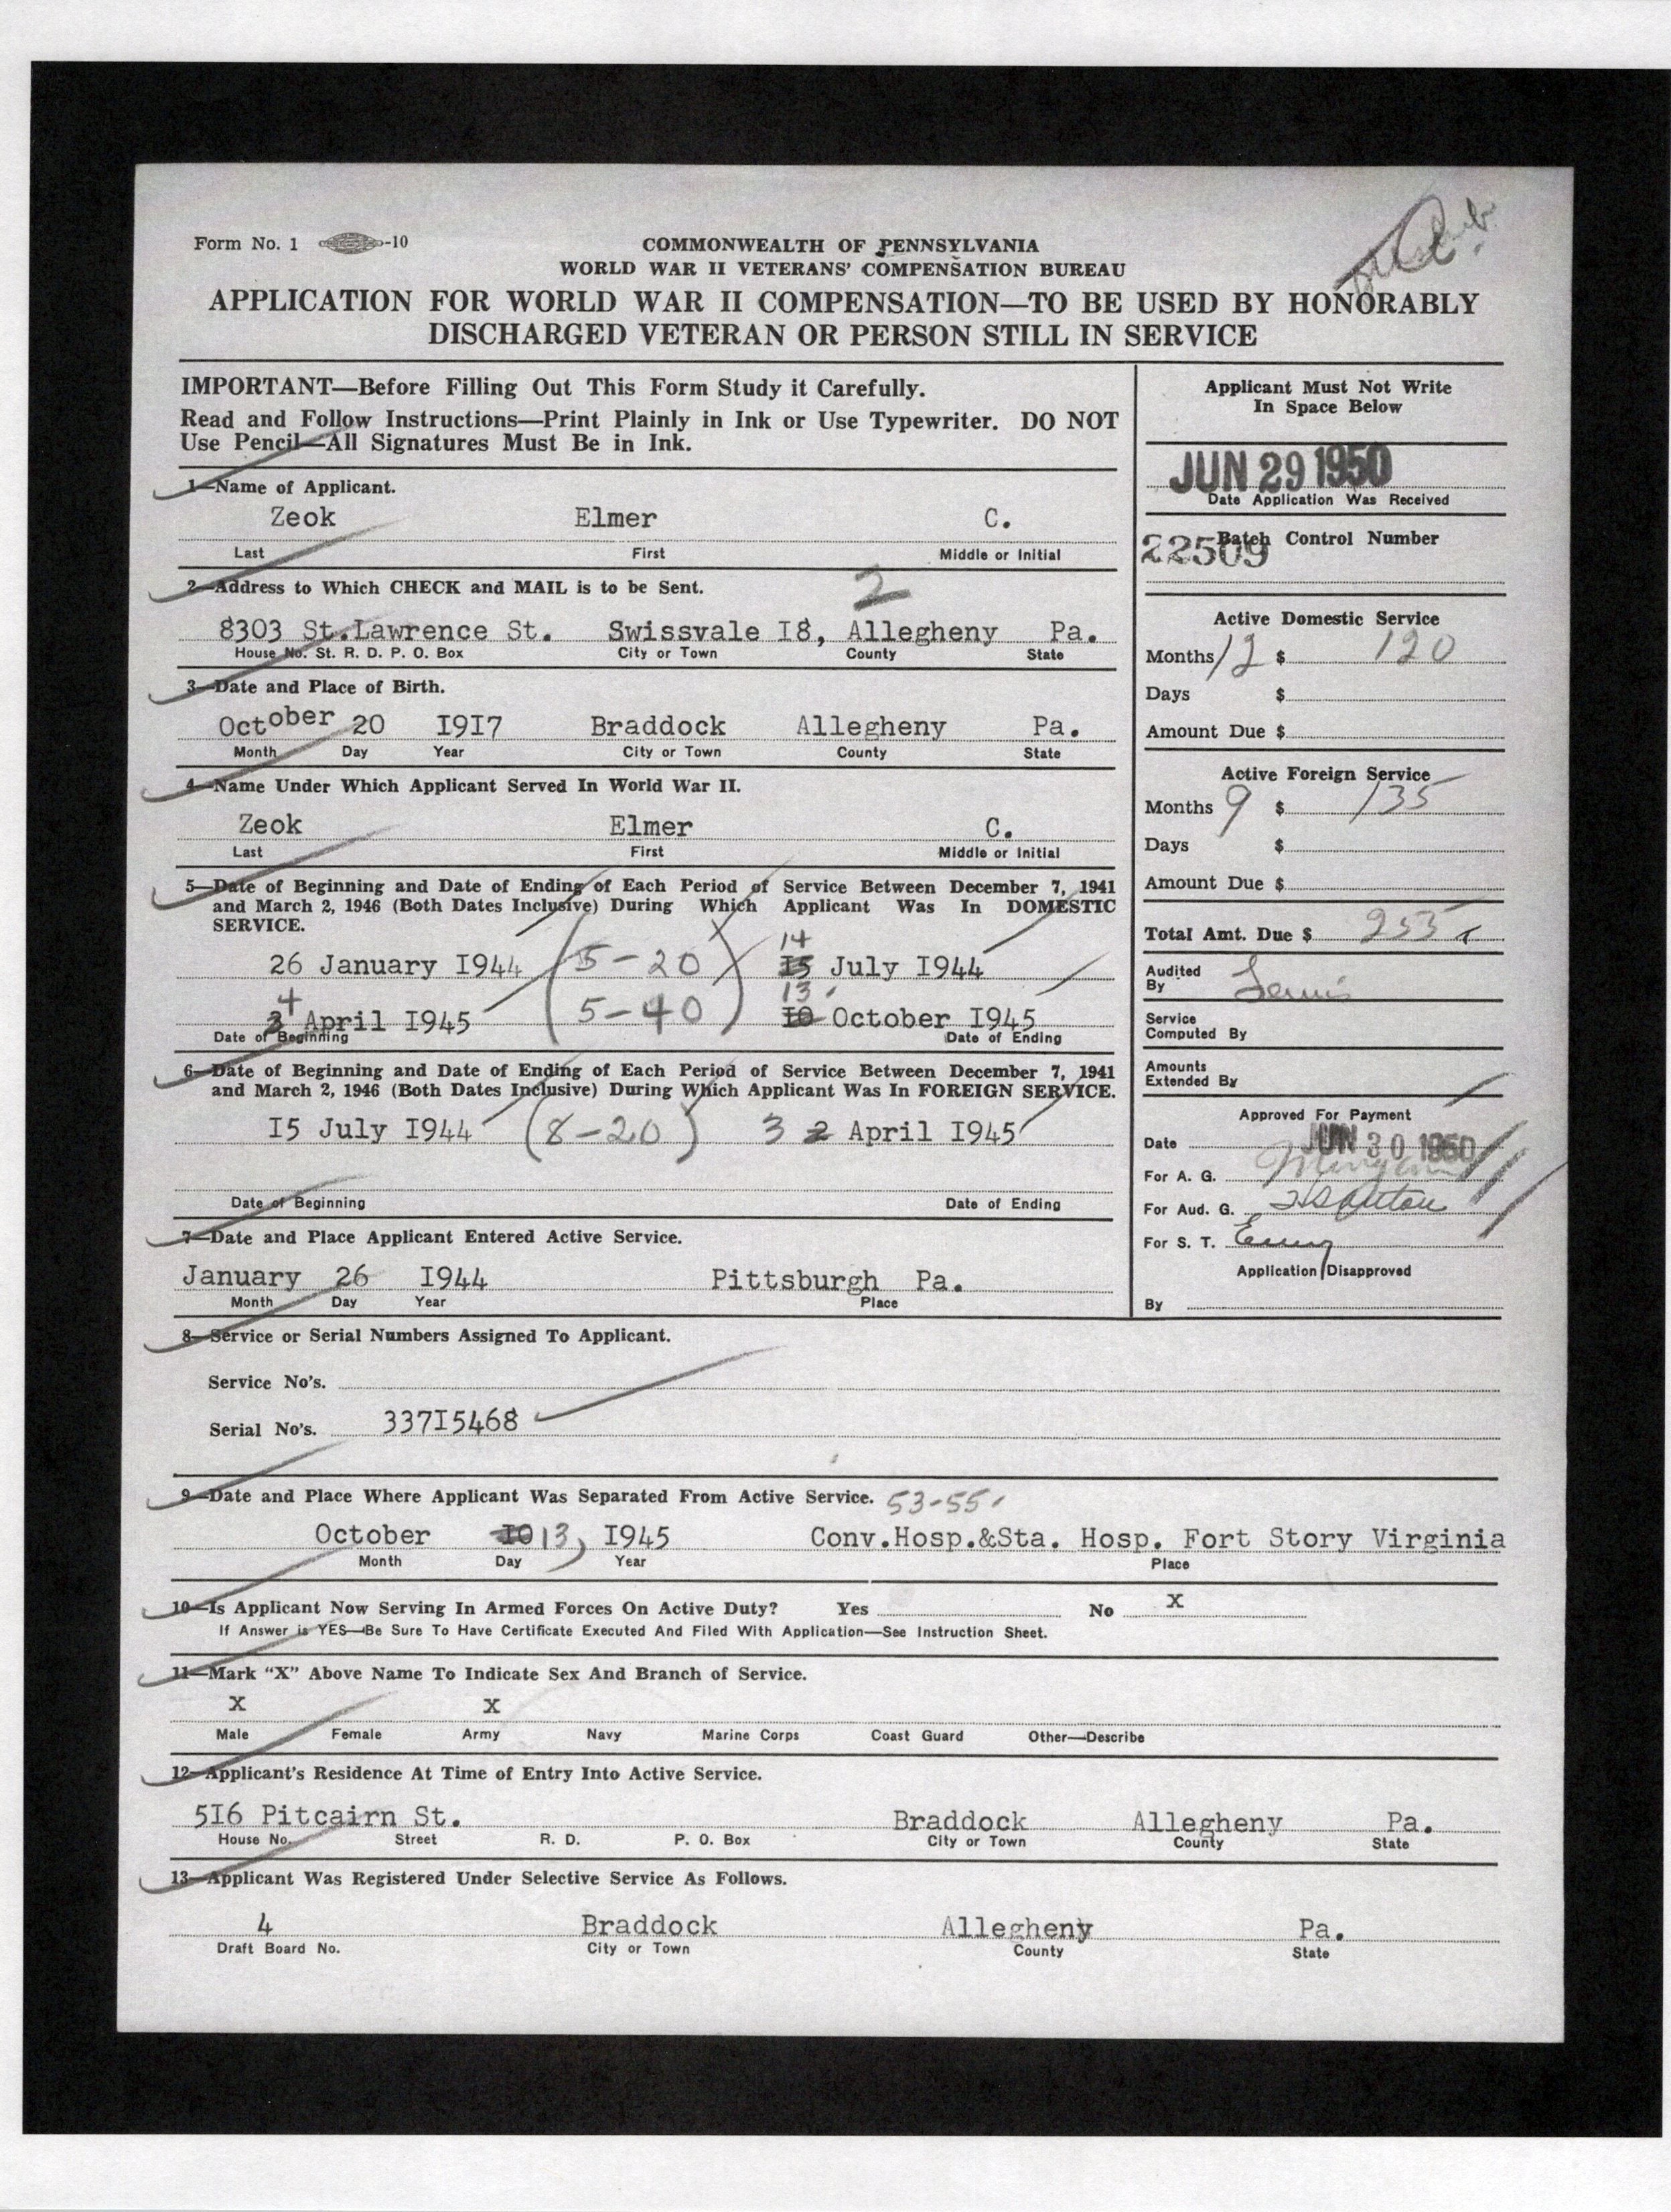 Form No. 1 -10
COMMONWEALTH OF PENNSYLVANIA
WORLD WAR II VETERANS' COMPENSATION BUREAU
APPLICATION FOR WORLD WAR II COMPENSATION—TO BE USED BY HONORABLY
DISCHARGED VETERAN OR PERSON STILL IN SERVICE
IMPORTANT—Before Filling Out This Form Study it Carefully.
Read and Follow Instructions—Print Plainly in Ink or Use Typewriter. DO NOT
Use Pencil—All Signatures Must Be in Ink.
1—Name of Applicant.
Zeok Elmer C.
Last First Middle or Initial
2—Address to Which CHECK and MAIL is to be Sent. 2
8303 St.Lawrence St. Swissvale I8, Allegheny Pa.
House No. St. R. D. P. O. Box City or Town County State
3—Date and Place of Birth.
October 20 I9I7 Braddock Allegheny Pa.
Month Day Year City or Town County State
4—Name Under Which Applicant Served In World War II.
Zeok Elmer C.
Last First Middle or Initial
5—Date of Beginning and Date of Ending of Each Period of Service Between December 7, 1941
and March 2, 1946 (Both Dates Inclusive) During Which Applicant Was In DOMESTIC
SERVICE.
14
26 January I944 (5-20) I5 July I944
4 13
3 April I945 (5-40) I0 October I945
Date of Beginning Date of Ending
6—Date of Beginning and Date of Ending of Each Period of Service Between December 7, 1941
and March 2, 1946 (Both Dates Inclusive) During Which Applicant Was In FOREIGN SERVICE.
I5 July I944 (8-20) 3 2 April I945
Date of Beginning Date of Ending
7—Date and Place Applicant Entered Active Service.
January 26 I944 Pittsburgh Pa.
Month Day Year Place
Applicant Must Not Write
In Space Below
JUN 29 1950
Date Application Was Received
Batch Control Number
22509
Active Domestic Service
Months 12 $ 120
Days $
Amount Due $
Active Foreign Service
Months 9 $ 135
Days $
Amount Due $
Total Amt. Due $ 255
Audited
By
Service
Computed By
Amounts
Extended By
Approved For Payment
Date JUN 30 1950
For A. G.
For Aud. G.
For S. T.
Application Disapproved
By
8—Service or Serial Numbers Assigned To Applicant.
Service No's.
Serial No's. 337I5468
9—Date and Place Where Applicant Was Separated From Active Service. 53-55
October I0 13, I945 Conv.Hosp.&Sta. Hosp. Fort Story Virginia
Month Day Year Place
10—Is Applicant Now Serving In Armed Forces On Active Duty? Yes No X
If Answer is YES—Be Sure To Have Certificate Executed And Filed With Application—See Instruction Sheet.
11—Mark "X" Above Name To Indicate Sex And Branch of Service.
X X
Male Female Army Navy Marine Corps Coast Guard Other—Describe
12—Applicant's Residence At Time of Entry Into Active Service.
5I6 Pitcairn St. Braddock Allegheny Pa.
House No. Street R. D. P. O. Box City or Town County State
13—Applicant Was Registered Under Selective Service As Follows.
4 Braddock Allegheny Pa.
Draft Board No. City or Town County State